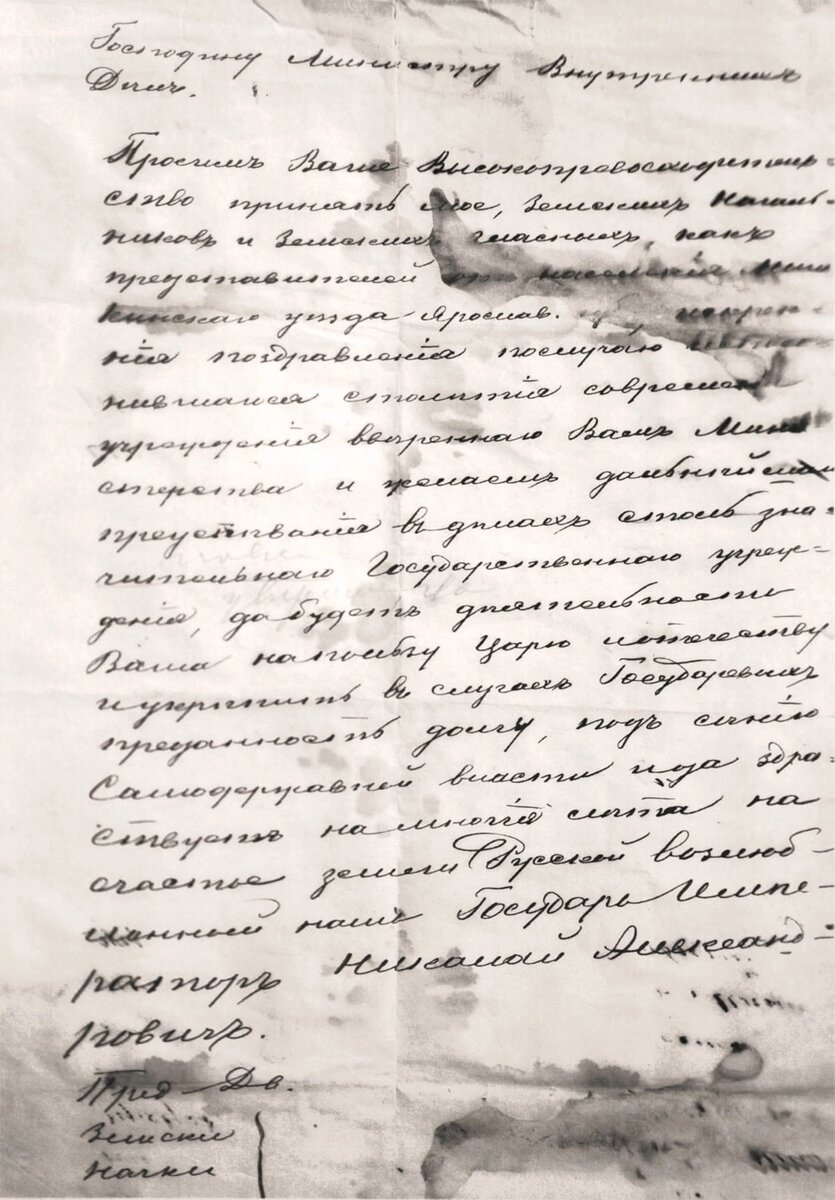 Господину Министру Внутреннихъ
Дѣлъ.
Просимъ Ваше Высокопревосходитель-
ство принять мое, Земскихъ Началь-
никовъ и Земскихъ гласныхъ, какъ
представителей отъ населенія Мыш-
кинскаго уѣзда Ярослав. губ. искрен-
нія поздравленія послучаю
нившагося столѣтія
учрежденія ввѣреннаго Вамъ Мини
стерства и желаемъ дальнѣйшаго
преуспѣванія въ дѣлахъ столь зна-
чительнаго Государственнаго учреж-
денія, да будетъ дѣятельность
Ваша на пользу Царю и отечеству
и укрѣпитъ въ слугахъ Государевыхъ
преданность долгу, подъ сѣнію
Самодержавной власти и да здра-
ствуетъ на многія лѣта на
счастье земли Русской возлюб-
ленный нашъ Государь Импе-
раторъ Николай Александ-
ровичъ.
Пред Дв.
Земски
начки